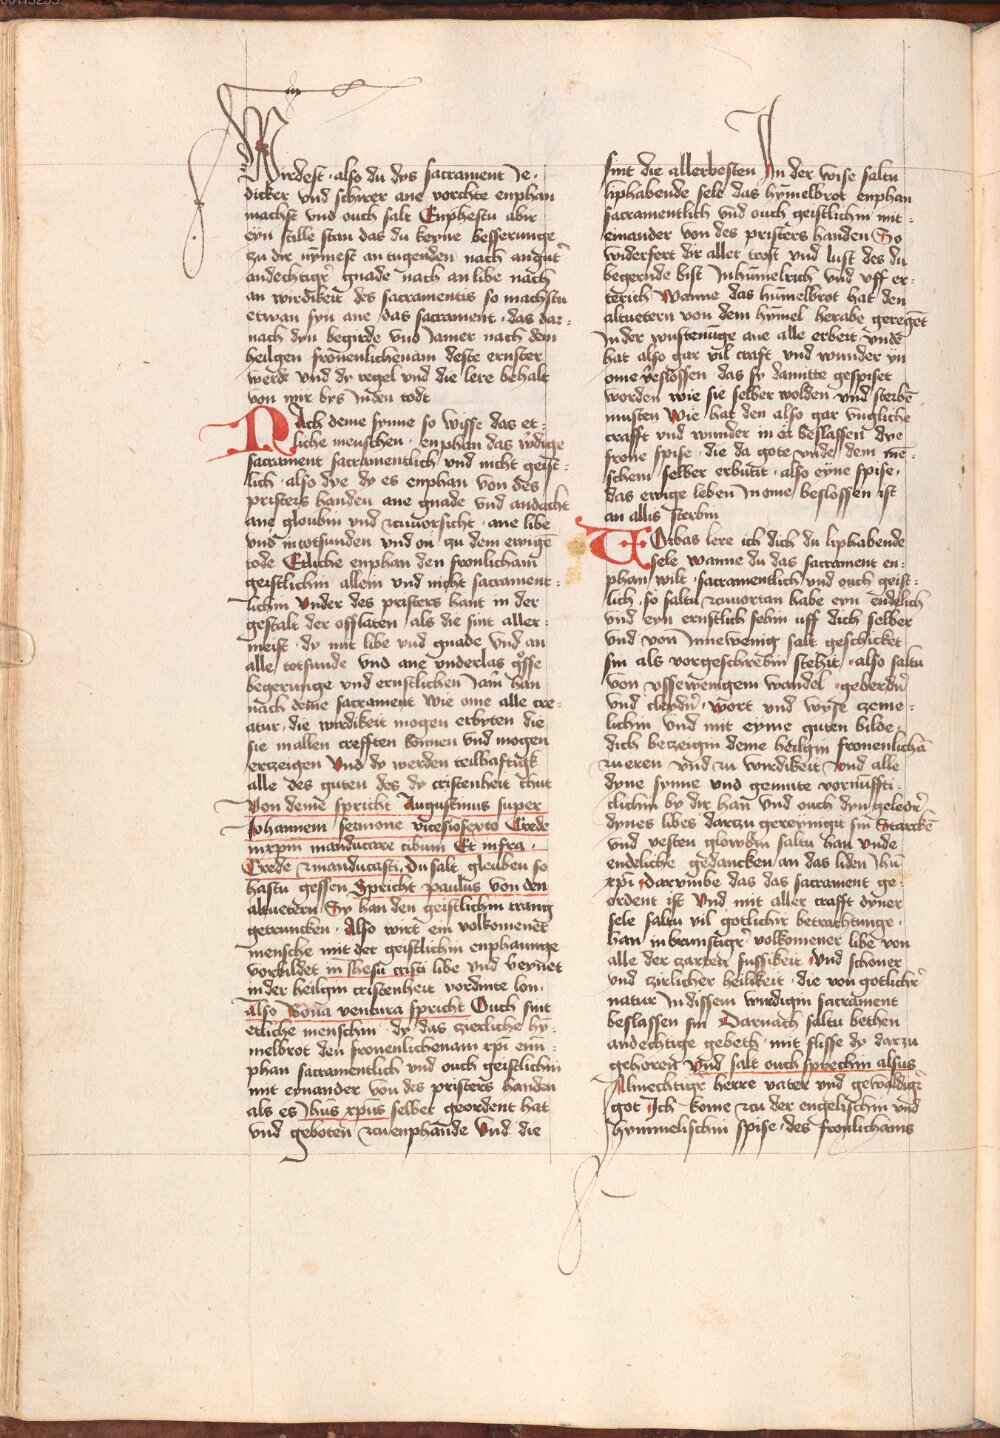 Wirdest · also du dys sacrament Je ·
dicker vnd schirer ane vorchte enphan
machst vnd ouch salt Enphestu abir
eyn stille stan das du keyne besserunge
zu dir nymest an tugenden nach an gut
andechtigr̄ gnade nach an libe nach
an wirdikeit des sacramentis so machstu
etwan syn ane das sacrament · das dar-
nach dyn begirde vnd Jamer nach dem
heilgen fronenlichenam deste ernster
werde vnd dy regel vnd die lere behalt
von mir bys In den todt
Nach deme synne so wisse das et-
liche menschen · enphan das wdige
sacrament sacramentlich vnd nicht geist-
lich · also dye dy es enphan von des
pristers handen ane gnade vnd andacht
ane gloubin vnd zcuuorsicht · ane libe
vnd in totsunden vnd on zu dem ewigē
tode Etliche enphan den fronlicham
geistlichin allein vnd nicht sacrament-
lichin Vnder des pristers hant in der
gestalt der offlaten / als die sint aller-
meist · dy mit libe vnd gnade vnd an
alle totsunde vnd ane vnderlas gͦsse
begerunge vnd ernstlichen Jam̄ han
nach deme sacrament Wie one alle cre-
atur · die wirdikeit mogen erbyten die
sie in allen crefften konnen vnd mogen
ertzeigen Vnd dy werden teilhaftigk
alle des guten des dy cristenheit thut
Von deme spricht Augustinus super
Johannem sermone vicesiosexto Crede
in xp̄m manducare cibum Et infra ·
Crede & manducasti · Du salt glouben so
hastu gessen Spricht paulus von den
altuetern Sy han den geistlichin trang
getruncken · Also wirt ein volkomener
mensche mit der geistlichin enphaunge
vorbildet in Jhesu cristi libe vnd v̄eynet
in der heilgin cristenheit vordinte lon ·
Also Bona ventura spricht Ouch sint
etliche menschin · dy das zierliche hy-
melbrot den fronenlichenam xp̄i enn-
phan sacramentlich vnd ouch geistlichin
mit eynander von des pristers handen
als es Jhūs xp̄us selber geordent hat
vnd geboten zcuenphande Vnd die
sint die allerbesten In der wise saltu
liphabende sele das hymelbrot enphan
sacramentlich vnd ouch geistlichin mit-
einander von des pristers handen So
widerfert dir aller trost vnd lust des du
begernde bist In hūmelrich vnd vff er-
terich Wanne das hūmelbrot hat den
altuetern von dem hymel herabe geregēt
In der wustenūge ane alle erbeit vnde
hat also gar vil craft vnd wunder yn
ome v̄eslossen das sy damitte gespiset
worden wie sie selber wolden vnd sterbē
musten Wie hat den also gar vngliche
crafft vnd wunder in er beslassen dye
frone spise · die da gote vnde dem mē-
schein selber erbutit · also eyne spise ·
das ewige leben In ome beslossen ist
an allis sterbin
Vorbas lere ich dich du liphabende
sele wanne du das sacrament en-
phan wilt · sacramentlich vnd ouch geist-
lich · so saltu zcuuortan habe eyn endelich
vnd eyn ernstlich sehin vff dich selber
vnd von Innewenig salt geschicket
sin als vorgeschrebin stehit · also saltu
von vssewenigem wandel · geberdin̄
vnd cleydin̄ · wort vnd wyse czeme-
lichin vnd mit eyme guten bilde ·
dich betzeigin deme heilgin fronenlichā
zcu eren vnd zcu wirdikeit Vnd alle
dyne synne vnd gemute vornuffti-
clichin by dir han vnd ouch dyn geledr̄
dynes libes darczu gereynigit sin Starckē
vnd vesten glowbin saltu han vnde
endeliche gedancken an das liden Jhū
xp̄i · Darvmbe das das sacrament ge-
ordent ist Vnd mit aller crafft dyner
sele saltu vil gotlichir betrachtunge ·
han in brunstigr̄ volkomener libe von
alle der zarten sussikeit · Vnd schoner
vnd zirlicher heilikeit · die von gotlichr̄
natur In dissem wirdigin sacrament
beslassen sin Darnach saltu bethen
andechtige gebeth · mit flisse dy darzu
gehoren Vnd salt ouch sprechin alsus
Almechtigr̄ herre vater vnd gewaldigr̄
got Ich kome zcu der engelischin vnd
hymmelischin spise · des fronlichams